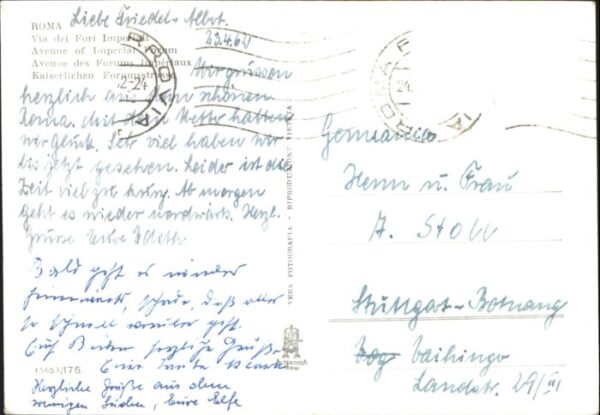 Liebe Friedel u. Albert.
23.4.62
ROMA
Via dei Fori Imperiali
Avenue of Imperial Forum
Avenue des Forums Impériaux
Kaiserlichen Forumsstrasse
Wir grüssen
herzlich aus dem schönen
Roma. Mit dem Wetter hatten
wir Glück. Sehr viel haben wir
bis jetzt gesehen. Leider ist die
Zeit viel zu kurz. Ab morgen
geht es wieder nordwärts. Herzl.
Grüsse Edith
Bald geht es wieder
heimwärts, schade, daß alles
so schnell vorüber geht.
Euch Beiden herzliche Grüße
Eure Tante
Herzliche Grüße aus dem
sonnigen Süden, Eure Elfe
15653/175
VERA FOTOGRAFIA - RIPRODUZIONE VIETATA
FERROVIA
2-24
ROMA FERROVIA
24.
Germania
Herrn u. Frau
A. Stoll
Stuttgart-Botnang
Vaihinger
Landstr. 29/III